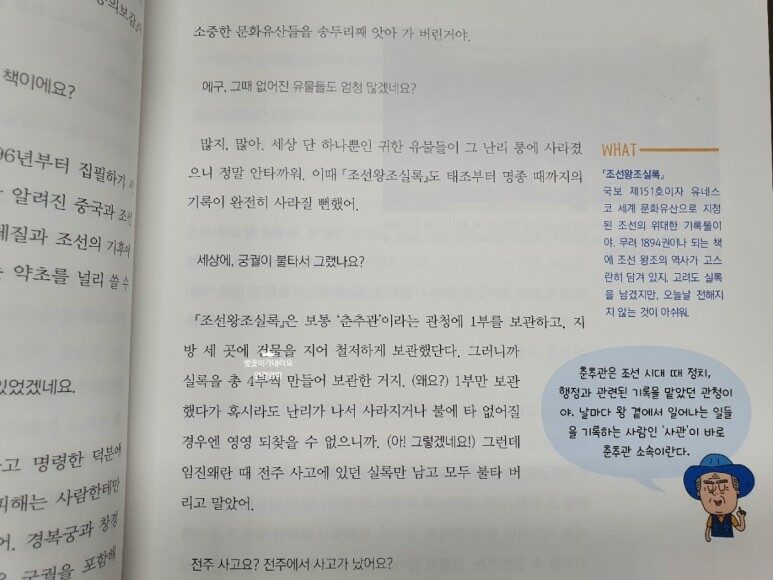 책이에요?
96년부터 집필하기
알려진 중국과 조선
체질과 조선의 기후에
약초를 널리 쓸 수
있었겠네요.
고 명령한 덕분에
피해는 사람한테만
어. 경복궁과 창경
궁궐을 포함해
소중한 문화유산들을 송두리째 앗아 가 버린거야.
에구, 그때 없어진 유물들도 엄청 많겠네요?
많지, 많아. 세상 단 하나뿐인 귀한 유물들이 그 난리 통에 사라졌
으니 정말 안타까워. 이때 『조선왕조실록』도 태조부터 명종 때까지의
기록이 완전히 사라질 뻔했어.
세상에, 궁궐이 불타서 그랬나요?
『조선왕조실록』은 보통 ‘춘추관’이라는 관청에 1부를 보관하고, 지
방 세 곳에 건물을 지어 철저하게 보관했단다. 그러니까
실록을 총 4부씩 만들어 보관한 거지. (왜요?) 1부만 보관
했다가 혹시라도 난리가 나서 사라지거나 불에 타 없어질
경우엔 영영 되찾을 수 없으니까. (아! 그렇겠네요!) 그런데
임진왜란 때 전주 사고에 있던 실록만 남고 모두 불타 버
리고 말았어.
전주 사고요? 전주에서 사고가 났어요?
WHAT
『조선왕조실록』
국보 제151호이자 유네스
코 세계 문화유산으로 지정
된 조선의 위대한 기록물이
야. 무려 1894권이나 되는 책
에 조선 왕조의 역사가 고스
란히 담겨 있지. 고려도 실록
을 남겼지만, 오늘날 전해지
지 않는 것이 아쉬워.
춘추관은 조선 시대 때 정치,
행정과 관련된 기록을 맡았던 관청이
야. 날마다 왕 곁에서 일어나는 일들
을 기록하는 사람인 ‘사관’이 바로
춘추관 소속이란다.
벚꽃비가내려요